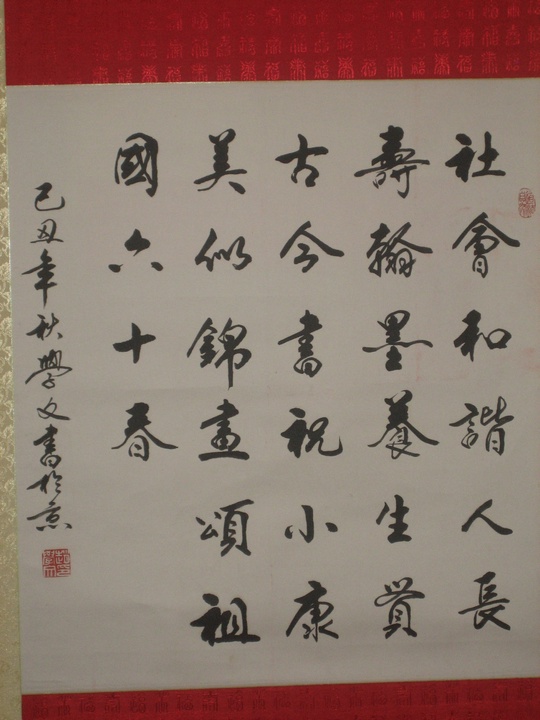 社會和諧人長
壽翰墨養生貫
古今書祝小康
美似錦畫頌祖
國六十春
己丑年秋學文書於京